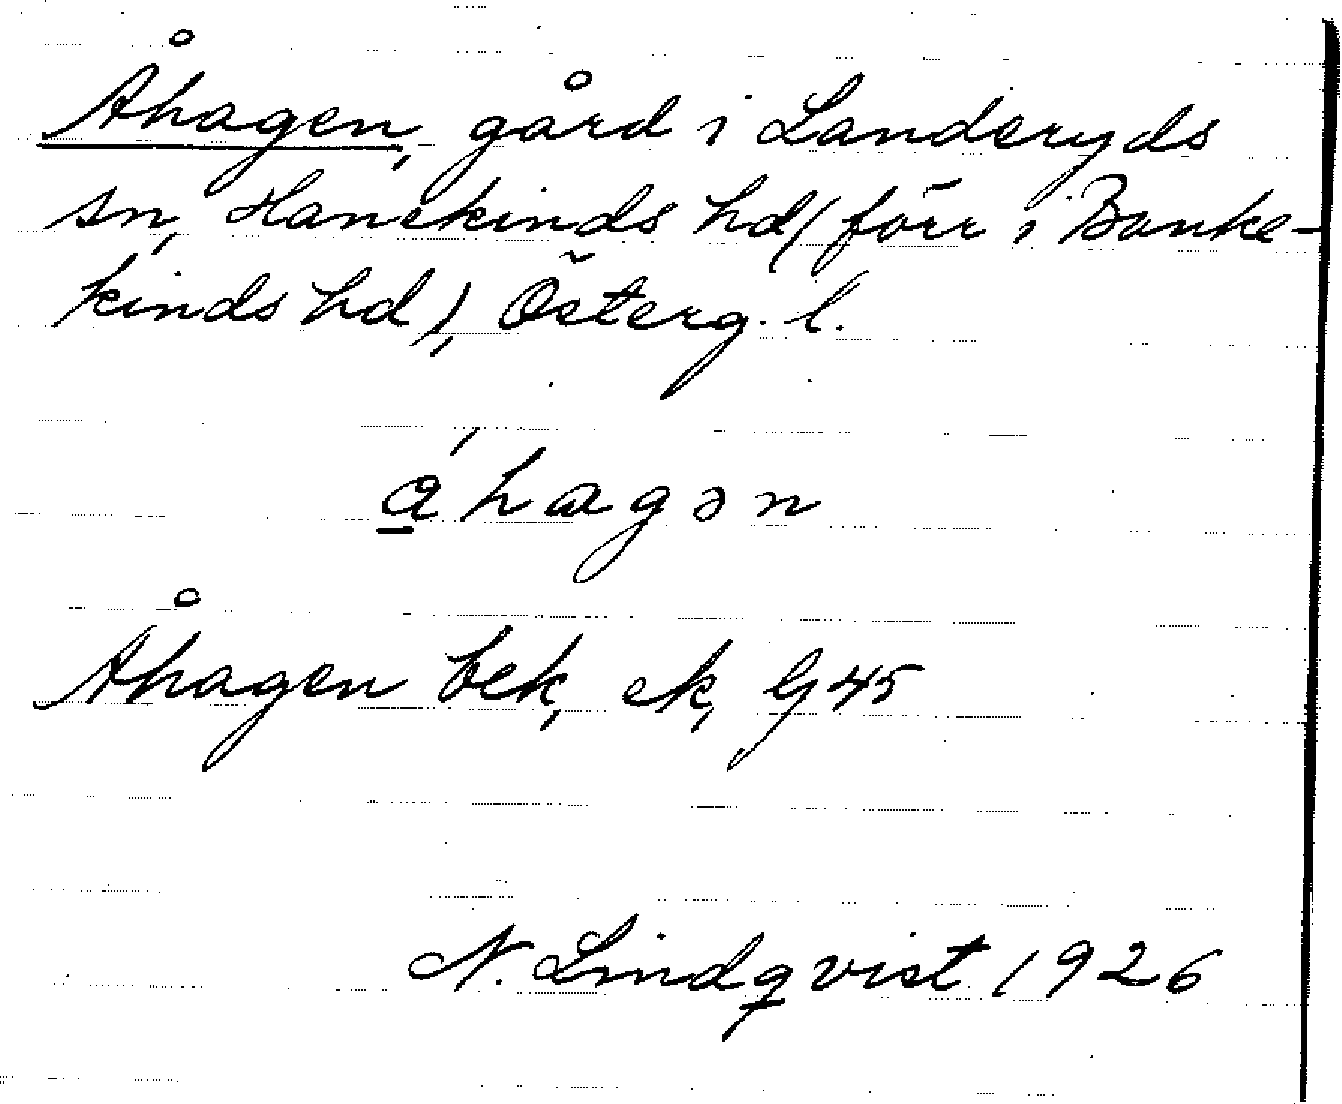 Åhagen, gård i Landeryds
sn, Hanekinds hd (förr i Banke-
kinds hd), Österg. l.
ǻhagən
Åhagen bek, ek, G 45
N. Lindqvist 1926